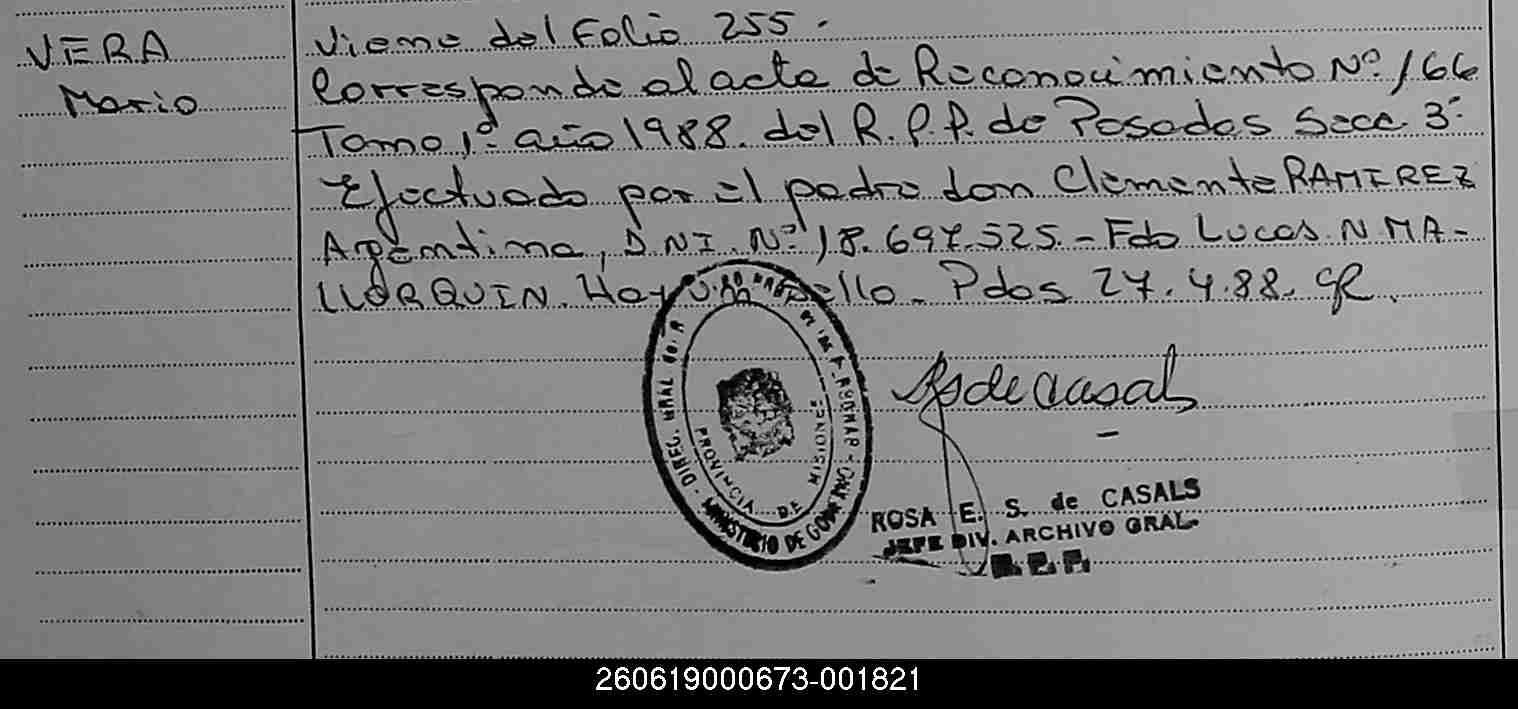 VERA
Mario
Viene del Folio 255.
Corresponde al acta de Reconocimiento Nº 166
Tomo 1º año 1988. del R.P.P. de Posadas Secc 3ª
Efectuado por el padre don Clemente RAMIREZ
Argentino, D.N.I. Nº 18.697.525.- Fdo Lucas N MA-
LLORQUIN. Hay un sello. Pdos 27.4.88.
DIREC. GRAL
PROVINCIA DE MISIONES
MINISTERIO DE GOBIERNO
RsdeCasals
ROSA E. S. de CASALS
JEFE DIV. ARCHIVO GRAL.
R.P.P.
260619000673-001821